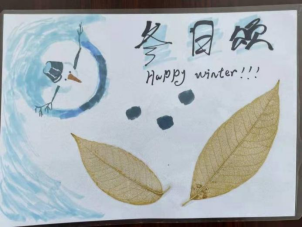 冬日颂
Happy winter!!!